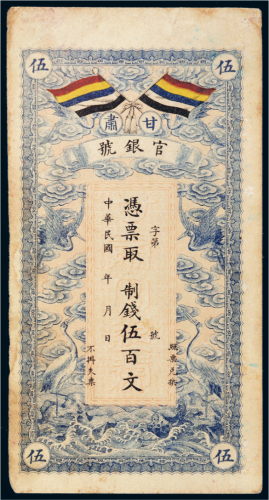 伍 伍
肅 甘
號銀官
字第 號
憑票取 制錢伍百文
中華民國 年 月 日
不掛失票
伍 伍